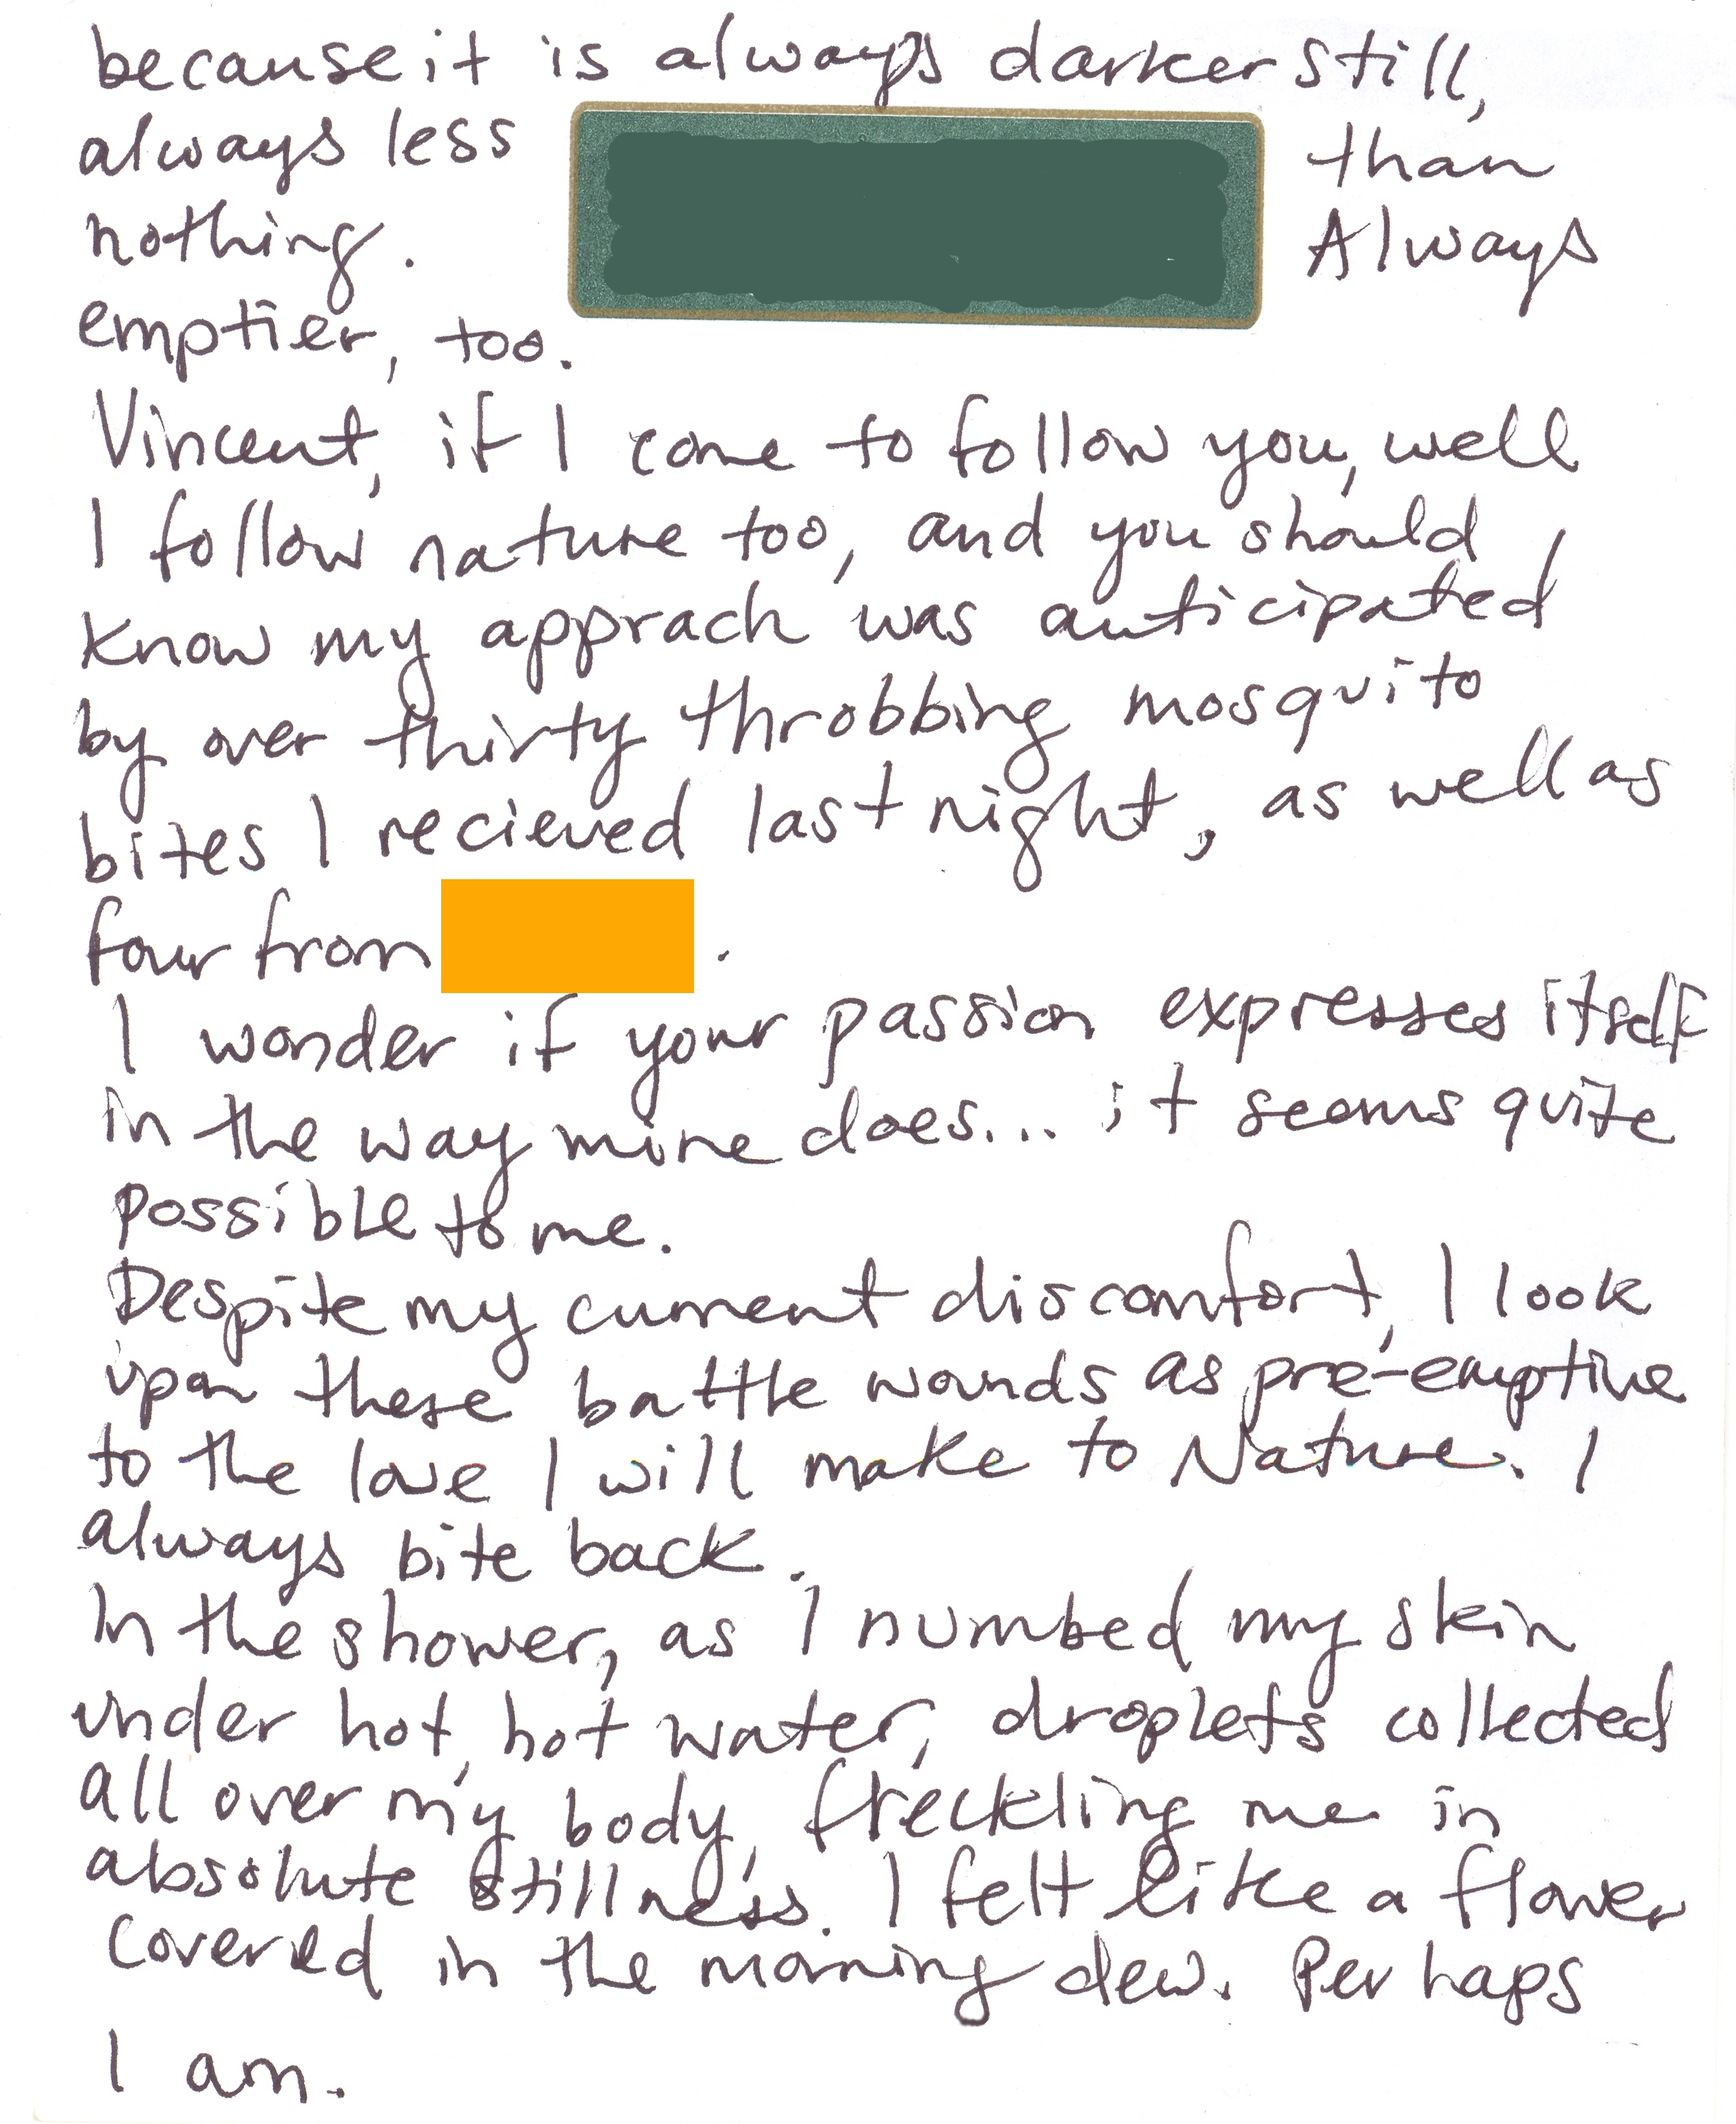 because it is always darker still,
always less than
nothing. Always
emptier, too.
Vincent, if I come to follow you, well
I follow nature too, and you should
know my apprach was anticipated
by over thirty throbbing mosquito
bites I recieved last night, as well as
four from .
I wonder if your passion expresses itself
in the way mine does... it seems quite
possible to me.
Despite my current discomfort, I look
upon these battle wounds as pre-emptive
to the love I will make to Nature. I
always bite back.
In the shower, as I numbed my skin
under hot, hot water, droplets collected
all over my body, freckling me in
absolute stillness. I felt like a flower
covered in the morning dew. Perhaps
I am.